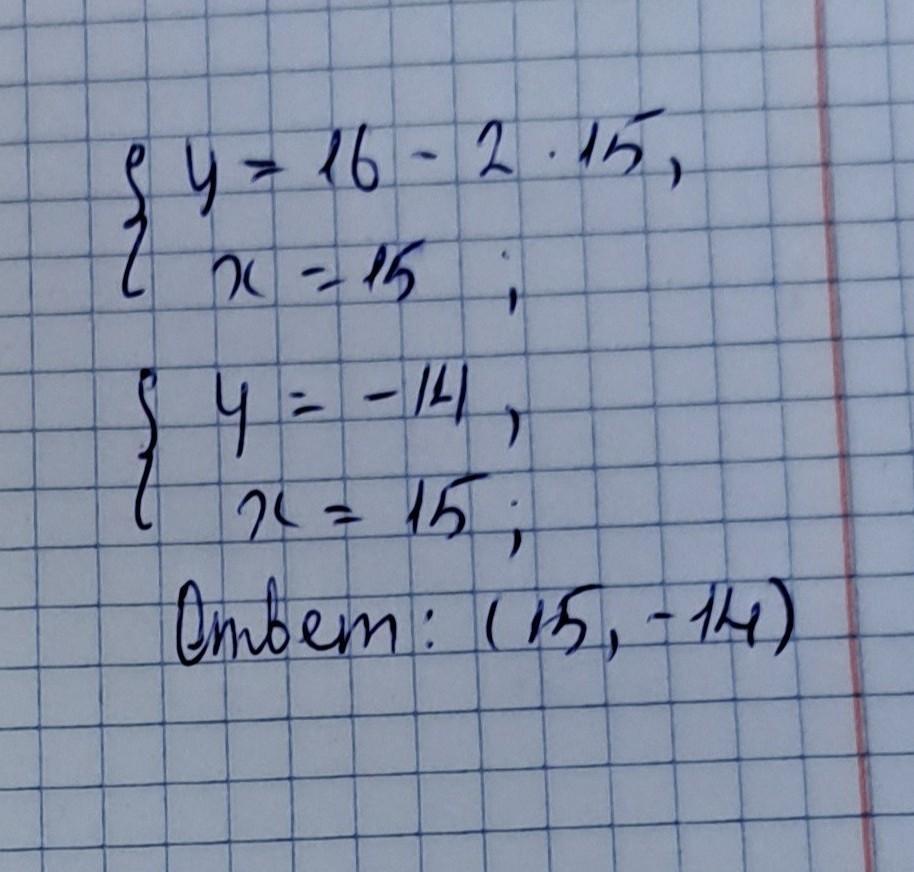 { y = 16 - 2 · 15,
x = 15 ;
{ y = -14 ,
x = 15 ;
Ответ: (15, -14)